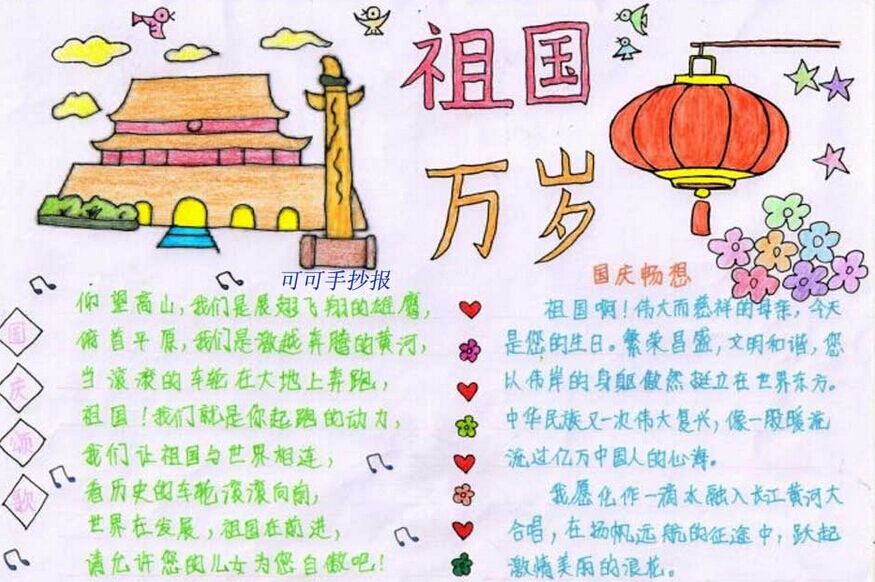 祖国
万岁
可可手抄报
国庆颂歌
仰望高山，我们是展翅飞翔的雄鹰，
俯首平原，我们是激越奔腾的黄河，
当滚滚的车轮在大地上奔跑，
祖国！我们就是你起跑的动力，
我们让祖国与世界相连，
看历史的车轮滚滚向前，
世界在发展，祖国在前进，
请允许您的儿女为您自傲吧！
国庆畅想
祖国啊！伟大而慈祥的母亲，今天
是您的生日。繁荣昌盛，文明和谐，您
以伟岸的身躯傲然挺立在世界东方。
中华民族又一次伟大复兴，像一股暖流
流过亿万中国人的心海。
我愿化作一滴水融入长江黄河大
合唱，在扬帆远航的征途中，跃起
激情美丽的浪花。